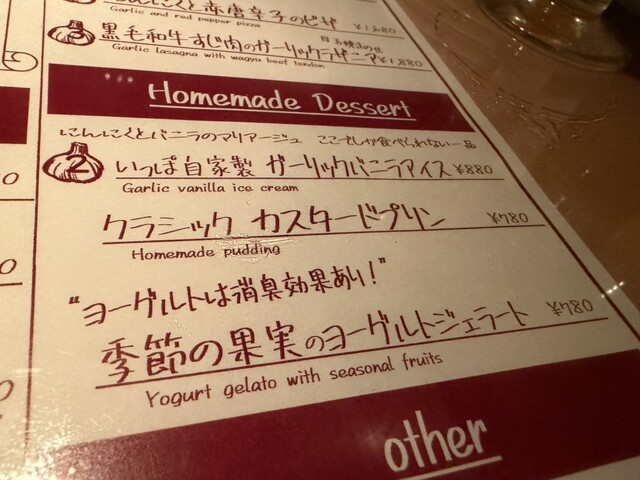 にんにくと赤唐辛子のピザ ¥1,680
Garlic and red pepper pizza
3 黒毛和牛すじ肉のガーリックラザニア ¥1,880
Garlic lasagna with wagyu beef tendon
Homemade Dessert
にんにくとバニラのマリアージュ ここでしか食べられない一品
2 いっぽ自家製 ガーリックバニラアイス ¥880
Garlic vanilla ice cream
クラシック カスタードプリン ¥780
Homemade pudding
“ヨーグルトは消臭効果あり!”
季節の果実のヨーグルトジェラート ¥780
Yogurt gelato with seasonal fruits
other